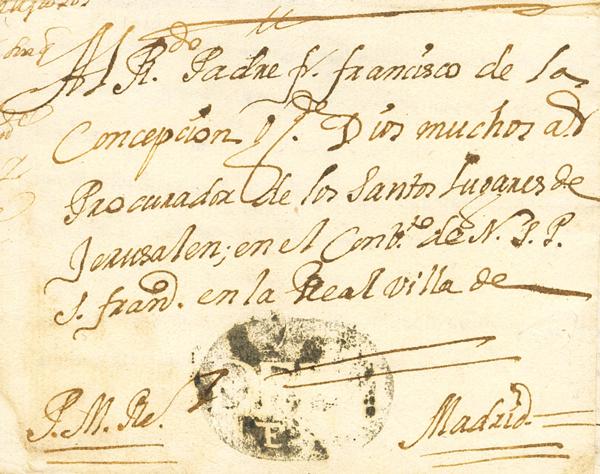 Al R.do Padre fr. francisco de la
Concepcion q Dios muchos a.s
Procurador de los Santos Lugares de
Jerusalen; en el Conb.to de N. S. P.
S. fran.co en la Real villa de
P. M. Re.
Madrid.